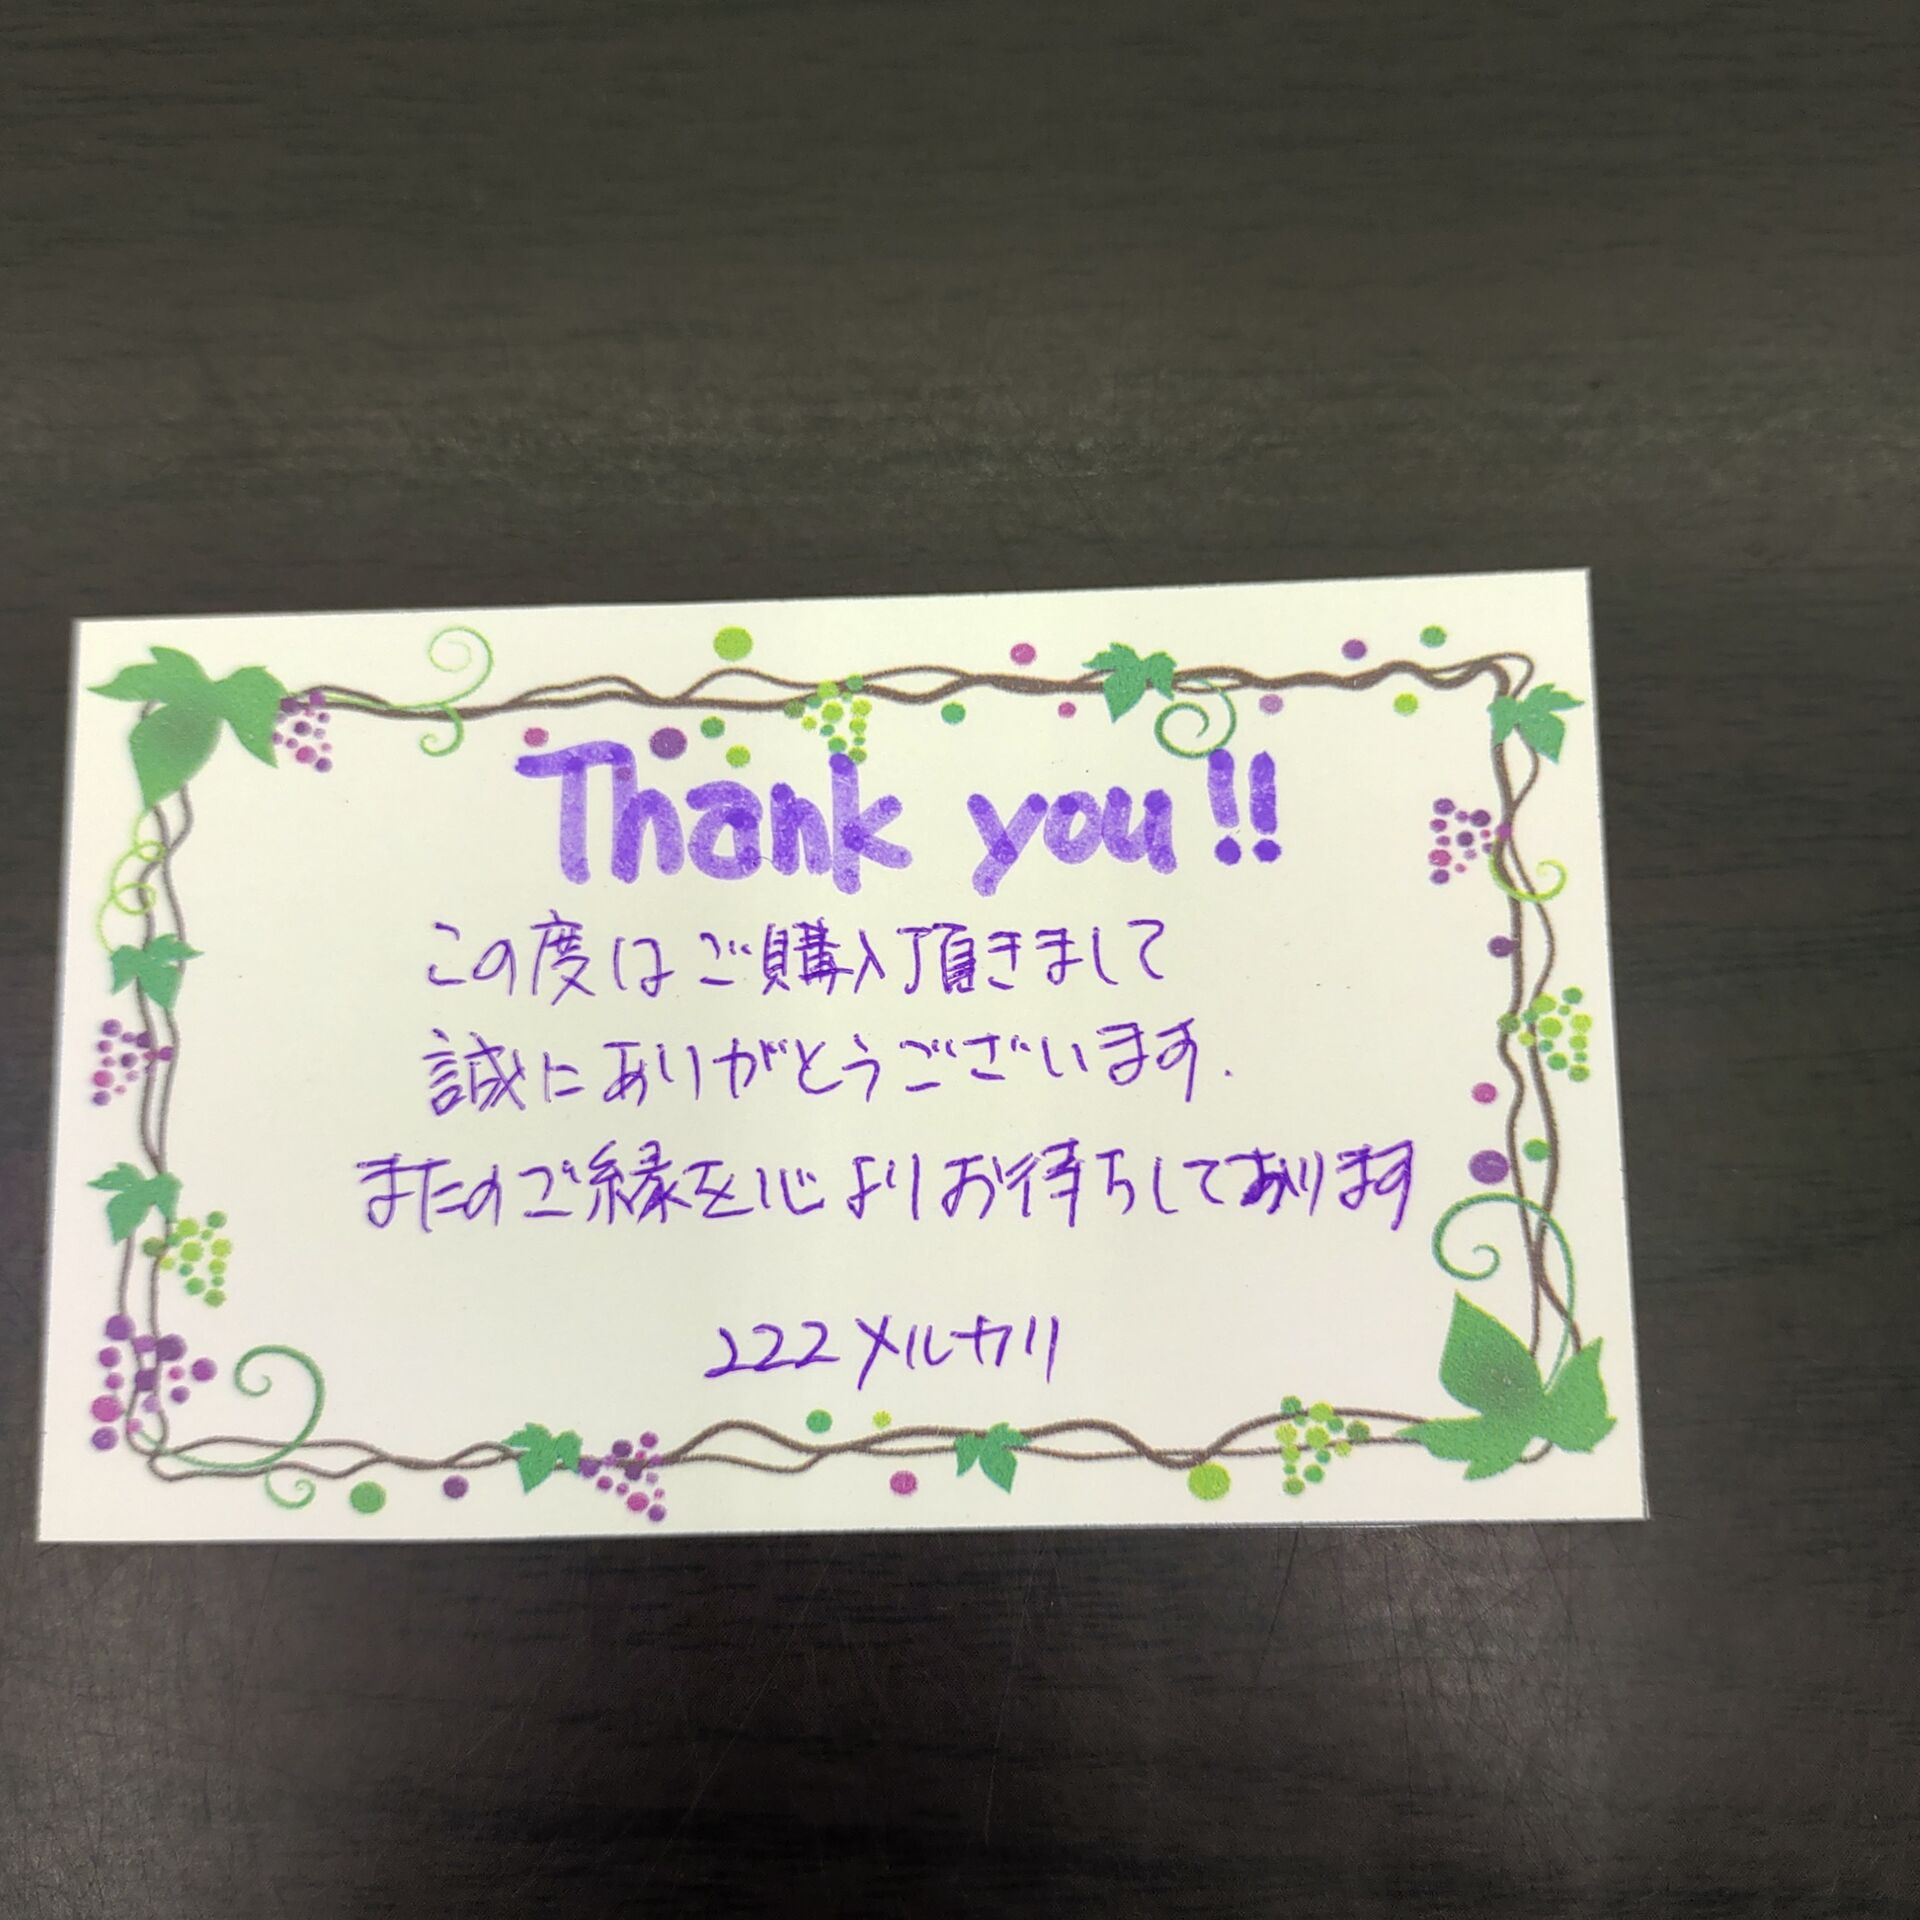 Thank you!!
この度はご購入頂きまして
誠にありがとうございます.
またのご縁を心よりお待ちしております
222メルカリ